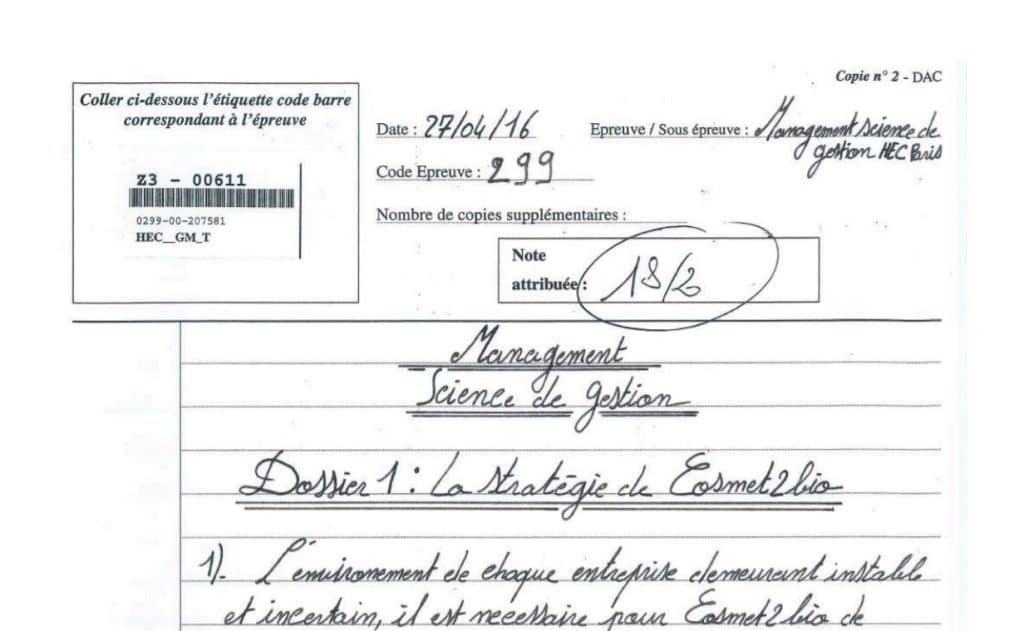 Copie n° 2 - DAC
Coller ci-dessous l'étiquette code barre
correspondant à l'épreuve
Z3 - 00611
0299-00-207581
HEC__GM_T
Date : 27/04/16
Epreuve / Sous épreuve : Management science de
gestion HEC Paris
Code Epreuve : 299
Nombre de copies supplémentaires :
Note
attribuée :
Management
Science de gestion
Dossier 1 : La stratégie de Cosmet2bio
1). L'environement de chaque entreprise demeurant instable
et incertain, il est necessaire pour Cosmet2bio de